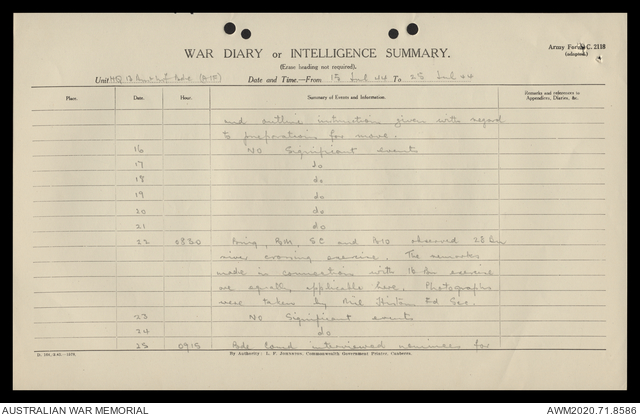 Army Form C. 2118
(adapted.)
WAR DIARY or INTELLIGENCE SUMMARY.
(Erase heading not required).
Unit HQ 13 Aust Inf Bde (AIF) Date and Time.—From 15 Jul 44 To 25 Jul 44
Place. Date. Hour. Summary of Events and Information. Remarks and references to Appendices, Diaries, &c.
and outline instruction given with regard
to preparations for move.
16 NO Significant events
17 do
18 do
19 do
20 do
21 do
22 0830 BM, SC and observed 28 Bn
river crossing exercise. The remarks
made in connection with 16 Bn exercise
are equally applicable here. Photographs
were taken by Mil History Sec.
23 NO Significant events
24 do
25 0915 Bde Comd interviewed nominees for
By Authority: L. F. Johnston, Commonwealth Government Printer, Canberra.
AUSTRALIAN WAR MEMORIAL
AWM2020.71.8586